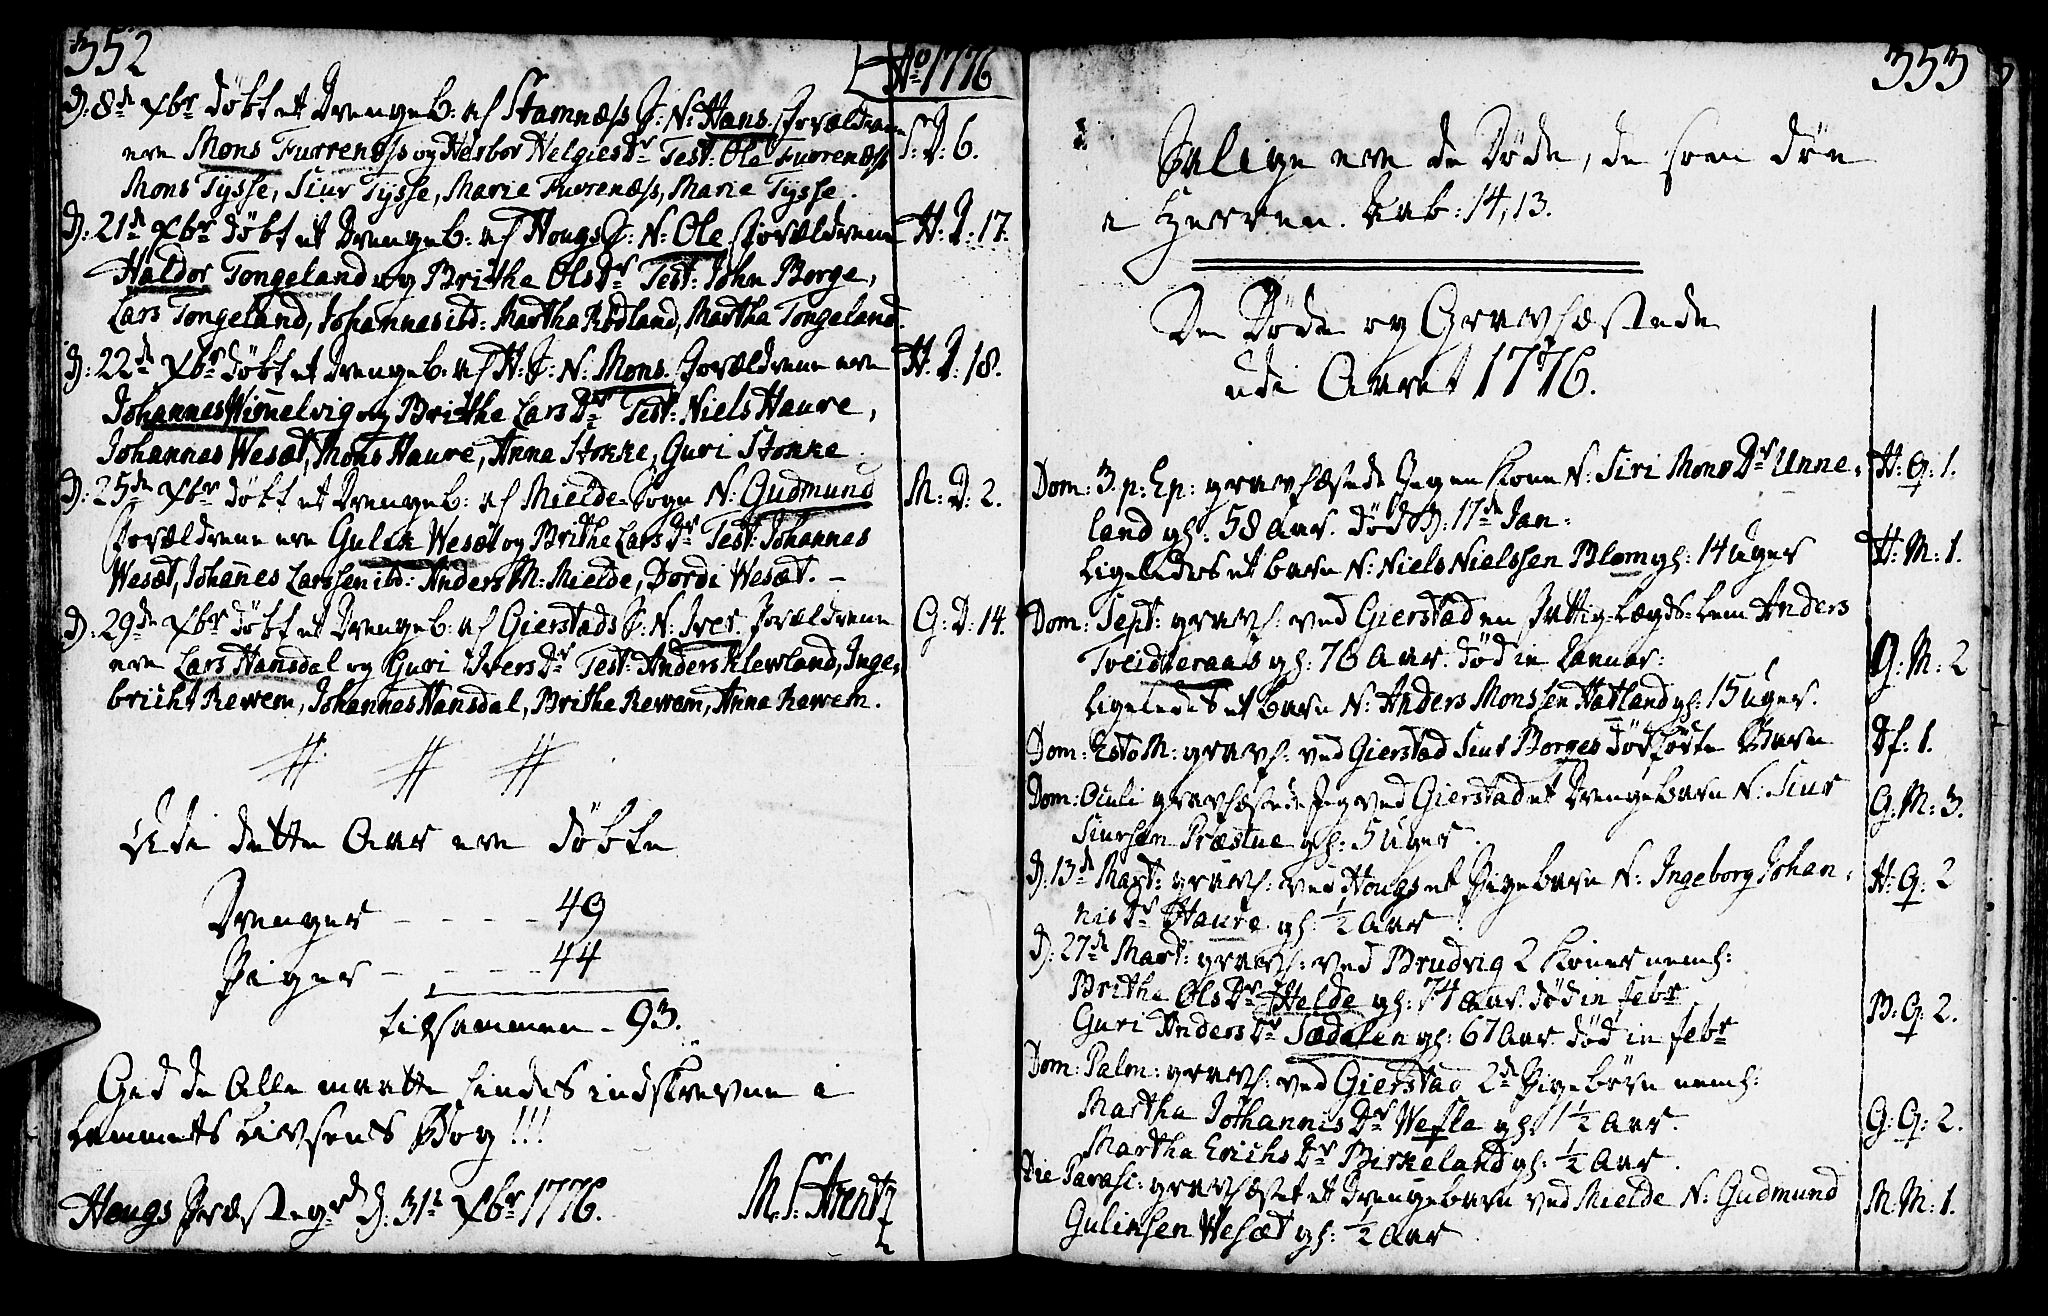 352
Ao 1776
D: 8de Xbr døbt et Drengeb: af Stamnæss S: N: Hans. Forældrene S: D: 6.
ere Mons Furrenæss og Herbor Helgies Dr Test: Ole Furrenæss
Mons Tysse, Siur Tysse, Marie Furrenæss, Marie Tysse.
D: 21de Xbr døbt et Drengeb: af Hougs S: N: Ole Forældrene H: D: 17.
Haldor Tongeland og Brithe Ols Dr Test: John Borge,
Lars Tongeland, Johannes ibd: Martha Rødland, Martha Tongeland.
D: 22de Xbr døbt et Drengeb: af H: S: N: Mons. Forældrene ere H: D: 18.
Johannes Wim̅elvig og Brithe Lars Dr Test: Niels Haure,
Johannes Wesæt, Mons Haure, Anna Stokke, Guri Stokke.
D: 25de Xbr døbt et Drengeb: af Mielde Sogn N: Gudmund M: D: 2.
Forældrene ere Gulik Wesæt og Brithe Lars Dr Test: Johannes
Wesæt, Johan̅es Larssen ibd: Anders M: Mielde, Dordi Wesæt. –
D: 29de Xbr døbt et Drengeb: af Gierstads S: N: Iver. Forældrene G: D: 14.
ere Lars Hansdal og Guri Ivers Dr Test: Anders Klewland, Inge,
bricht Rewem, Johannes Hansdal, Brithe Rewem, Anna Rewem.
# # #
Udi dette Aar ere døbte
Drenger - - - - 49
Piger - - - - 44
tilsammen - 93.
Gid de Alle maatte findes indskrevne i
Lammets Livsens Bog!!!
Hougs Præstegrd D: 31te Xbr 1776.
M. S. Arentz
353
Salige ere de Døde, de som døe
i Herren. Aab: 14, 13.
De Døde og Gravfæstede
udi Aaret 1776.
Dom: 3. p: Ep: gravfæstede Jeg en Kone N: Siri Mons Dr Unne, H: Q: 1.
land gl: 58 Aar. død D: 17de Jan:
Ligeledes et barn N: Niels Nielssen Blom gl: 14 Uger H: M: 1.
Dom: Sept: gravf: ved Gierstad en Fattig-Lægds-Lem Anders
Tveidteraas gl: 76 Aar. død in Januar: G: M: 2
Ligeledes et barn N: Anders Monssen Hatland gl: 15 Uger.
Dom: Esto M: gravf: ved Gierstad Siur Borges dødfødte Barn Df: 1.
Dom: Oculi gravfæstede Jeg ved Gierstad et Drengebarn N: Siur G: M: 3.
Siursen Præstue gl: 5 Uger.
D: 13de Mart: gravf: ved Hougs et Pigebarn N: Ingeborg Johan, H: Q: 2
nis Dr Haure gl: ½ Aar
D: 27de Mart: gravf: ved Brudvig 2 Koner neml:
Brithe Ols Dr Helde gl: 74 Aar. død in febr B: Q: 2.
Guri Anders Dr Sædalen gl: 67 Aar. død in febr
Dom: Palm: gravf: ved Gierstad 2de Pigebørn neml:
Martha Johannis Dr Wefle gl: 1½ Aar. G: Q: 2.
Martha Erichs Dr Birkeland gl: ½ Aar.
Die Parasc: gravfæstet et Drengebarn ved Mielde N: Gudmund M: M: 1.
Guliksen Wesæt gl: ½ Aar